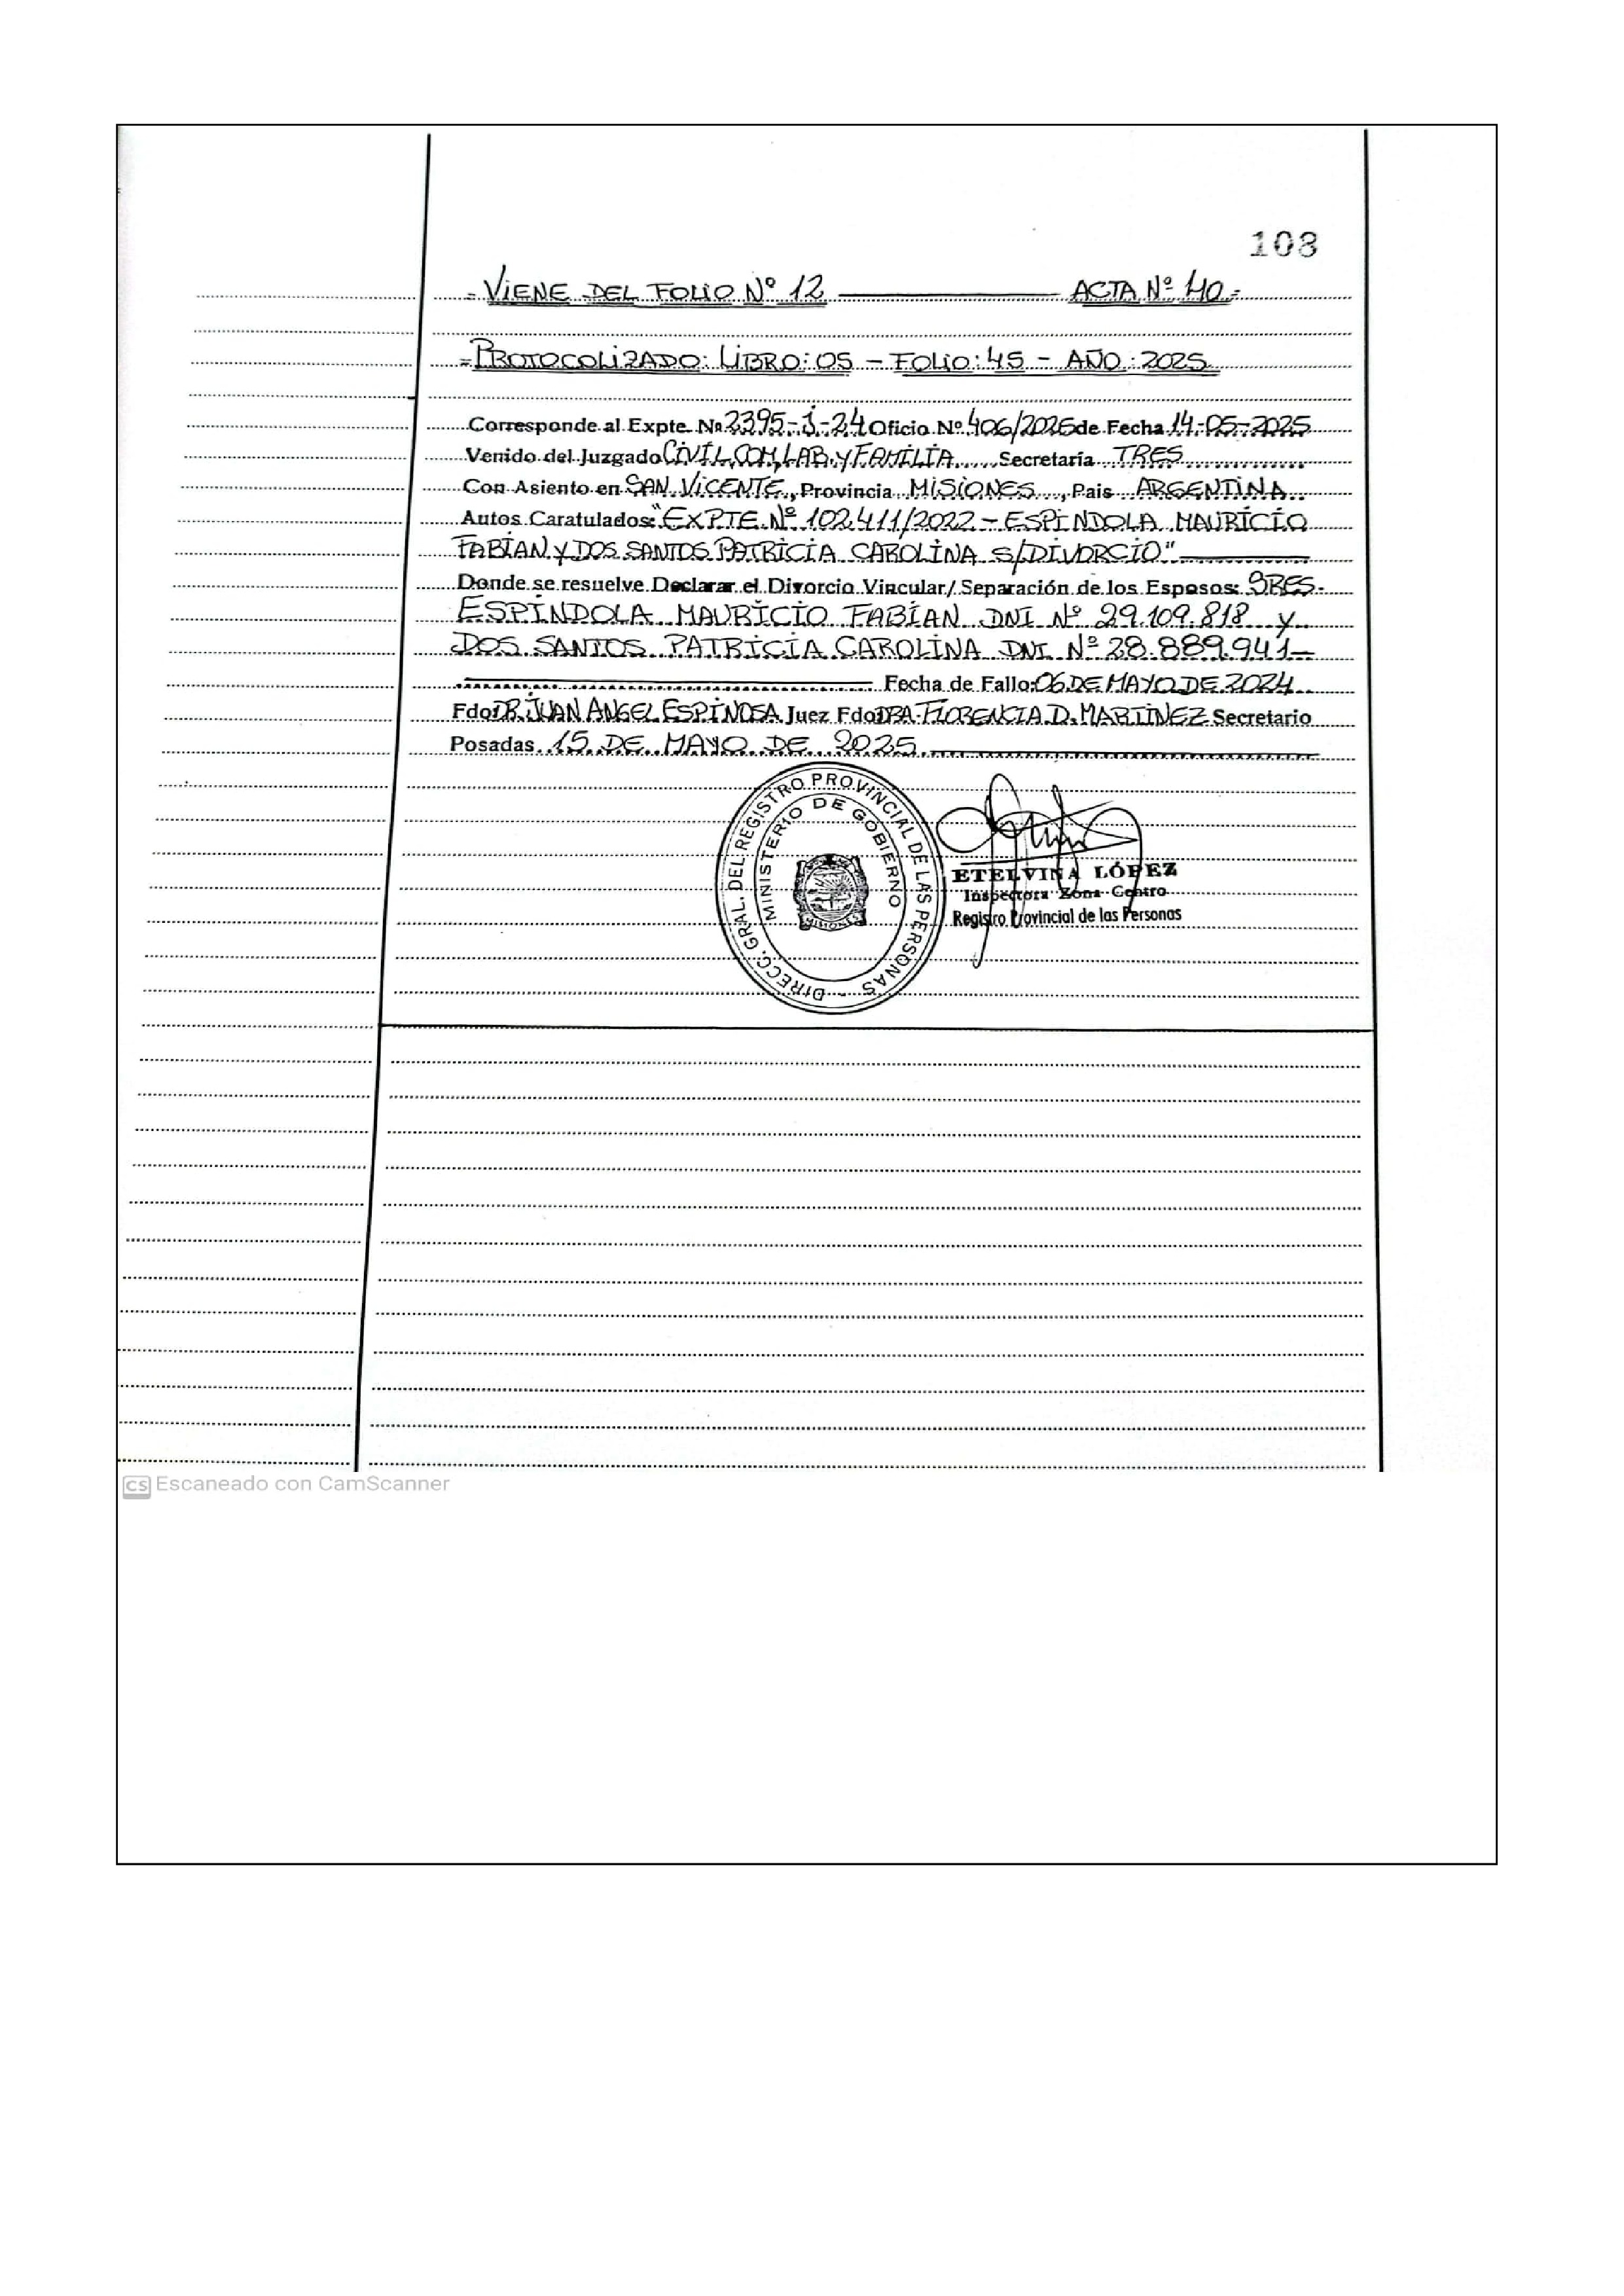 108
- VIENE DEL FOLIO Nº 12 ACTA Nº 40.-
- PROTOCOLIZADO: LIBRO: 05 - FOLIO: 45 - AÑO: 2025
Corresponde al Expte. Nº 2395-J-24 Oficio Nº 406/2025 de Fecha 14-05-2025
Venido del Juzgado CIVIL, COM, LAB. Y FAMILIA Secretaría TRES
Con Asiento en SAN VICENTE, Provincia MISIONES, Pais ARGENTINA
Autos Caratulados: "EXPTE. Nº 102411/2022 - ESPINDOLA MAURICIO
FABIAN Y DOS SANTOS PATRICIA CAROLINA S/DIVORCIO"
Donde se resuelve Declarar el Divorcio Vincular/ Separación de los Esposos: SRES.
ESPINDOLA MAURICIO FABIAN DNI Nº 29.109.818 y
DOS SANTOS PATRICIA CAROLINA DNI Nº 28.889.941-
Fecha de Fallo: 06 DE MAYO DE 2024
Fdo DR. JUAN ANGEL ESPINOSA Juez Fdo DRA. FLORENCIA D. MARTINEZ Secretario
Posadas 15 DE MAYO DE 2025
DIRECC. GRAL. DEL REGISTRO PROVINCIAL DE LAS PERSONAS -
MINISTERIO DE GOBIERNO
MISIONES
ETELVINA LÓPEZ
Inspectora Zona Centro
Registro Provincial de las Personas
CS Escaneado con CamScanner